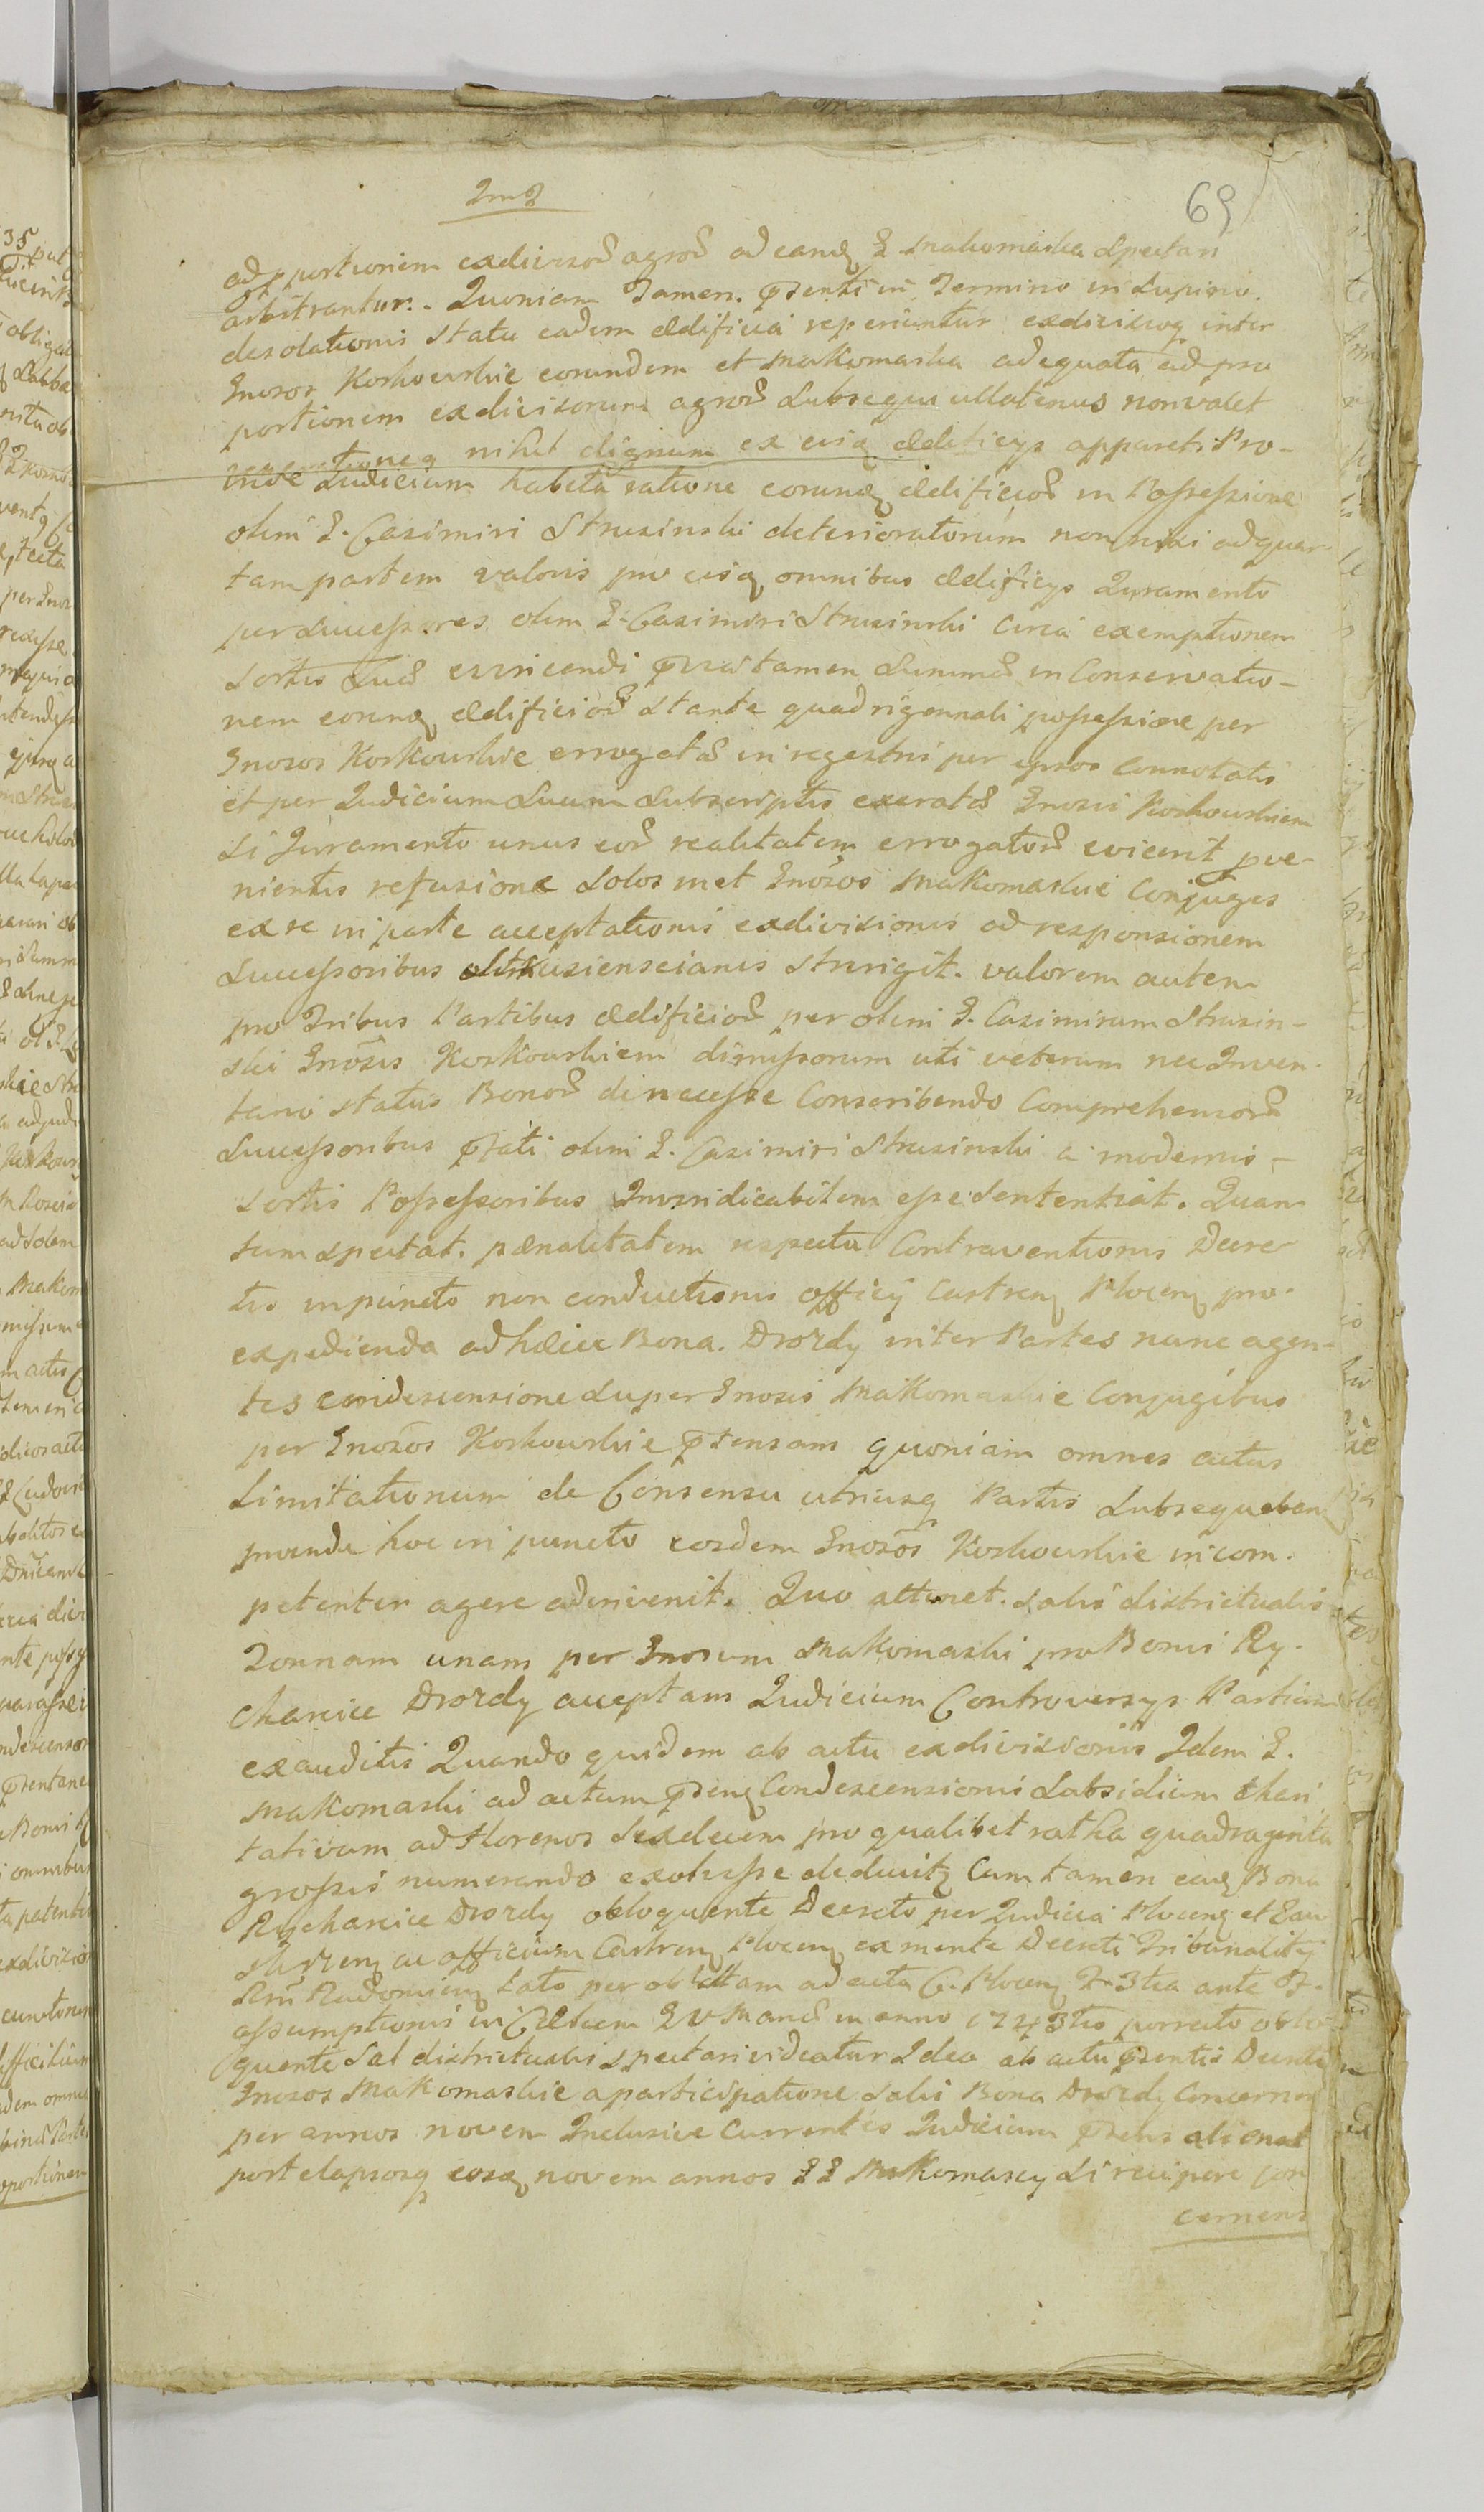 69
ad portionem exdivisor agror ad eandq G Makomaska spectan
arbitrantur. Quoniam Tamen. pnti in Termino in supino
desolationis statu eadem ædificia reperiuntur exdivisioq inter
Gnosos Koskowskie eorundem et Makomaska adequata ad pro
portionem exdivisorum agror subsequi ullatenus non valet
nihil dignum ex eisq ædificijs apparet. Pro-
inde Judicium habita ratione eorunq ædificior in Possessione
olim G. Casimiri Strusinski deterioratorum non nisi ad quar-
tam partem valoris pro eisq omnibus ædificijs Juramento
per Successores olim G. Casimiri Strusinski circa exemptionem
sortis suæ evincendi tamen Summas in Conservatio-
nem eorunq ædificior stante quadrigennali possessione per
Gnosos Koskowskie errogatas in regestris per ipsos connotatis
et per Judicium Suum Subscriptis exeratas Gnosis Koskowskiem
si Juramento unus eor realitatem errogator evicerit pve-
nientis refusione Solos met Gnosos Makomaskie Conjuges
ex se in parte acceptationis exdivisionis ad responsionem
Successoribus Strusienscianis strinxit. valorem autem
pro Tribus Partibus ædificior per olim G. Casimirum Strusin-
ski Gnosis Koskowskiem dimissorum uti veterum nec Inven-
tario status Bonor de necesse Conscribendo Comprehensor
Successoribus pfati olim G. Casimiri Strusinski a modernis-
sortis Possessoribus Invendicabilem esse sententiat. Quan
tum spectat. pænalitatem respectu Contraventionis Decre
tis in puncto non conductionis officij Castrenq Plocenq pro-
expedienda ad hæcce Bona. Drozdy inter Partes nunc agen-
tes condescensione super Gnosis Makomaskie Conjugibus
per Gnosos Koskowskie ptensam quoniam omnes actus
Limitationum de Consensu utriusq Partis subsequeban
proinde hoc in puncto eosdem Gnosos Koskowskie incom-
petenter agere adinvenit. Quo attinet. salis districtualis
Tonnam unam per Gnosum Makomaski pro Bonis Ry-
chanice Drozdy acceptam Judicium Controversijs Partium
exauditis Quando quidem ab actu exdivisionis Idem G.
Makomaski ad actum psenq Condescensionis Subsidium chari
tativum ad florenos sexdecim pro qualibet ratha quadraginta
grossis numerando exolvisse deducitq Cum tamen eaq Bona
Rychanice Drozdy obloquente Decreto per Judicia Plocenq et Zaw
skrzenq ac officium Castrenq Plocenq ex mente Decreti Tribunalitij
Rni Radomienq lato per oblatam ad acta C. Plocenq
assumptionis in Anno 1743tio porrecto oblo
quente Sal districtualis spectari videatur Ideo ab actu psentis Decreti
Gnosos Makomaskie a participatione salis Bona Drozdy Concernen
per annos novem Inclusive Currentes Judicium psens alienat
post elapsosq eosq novem annos GG Makomascy si recipere con
cernens